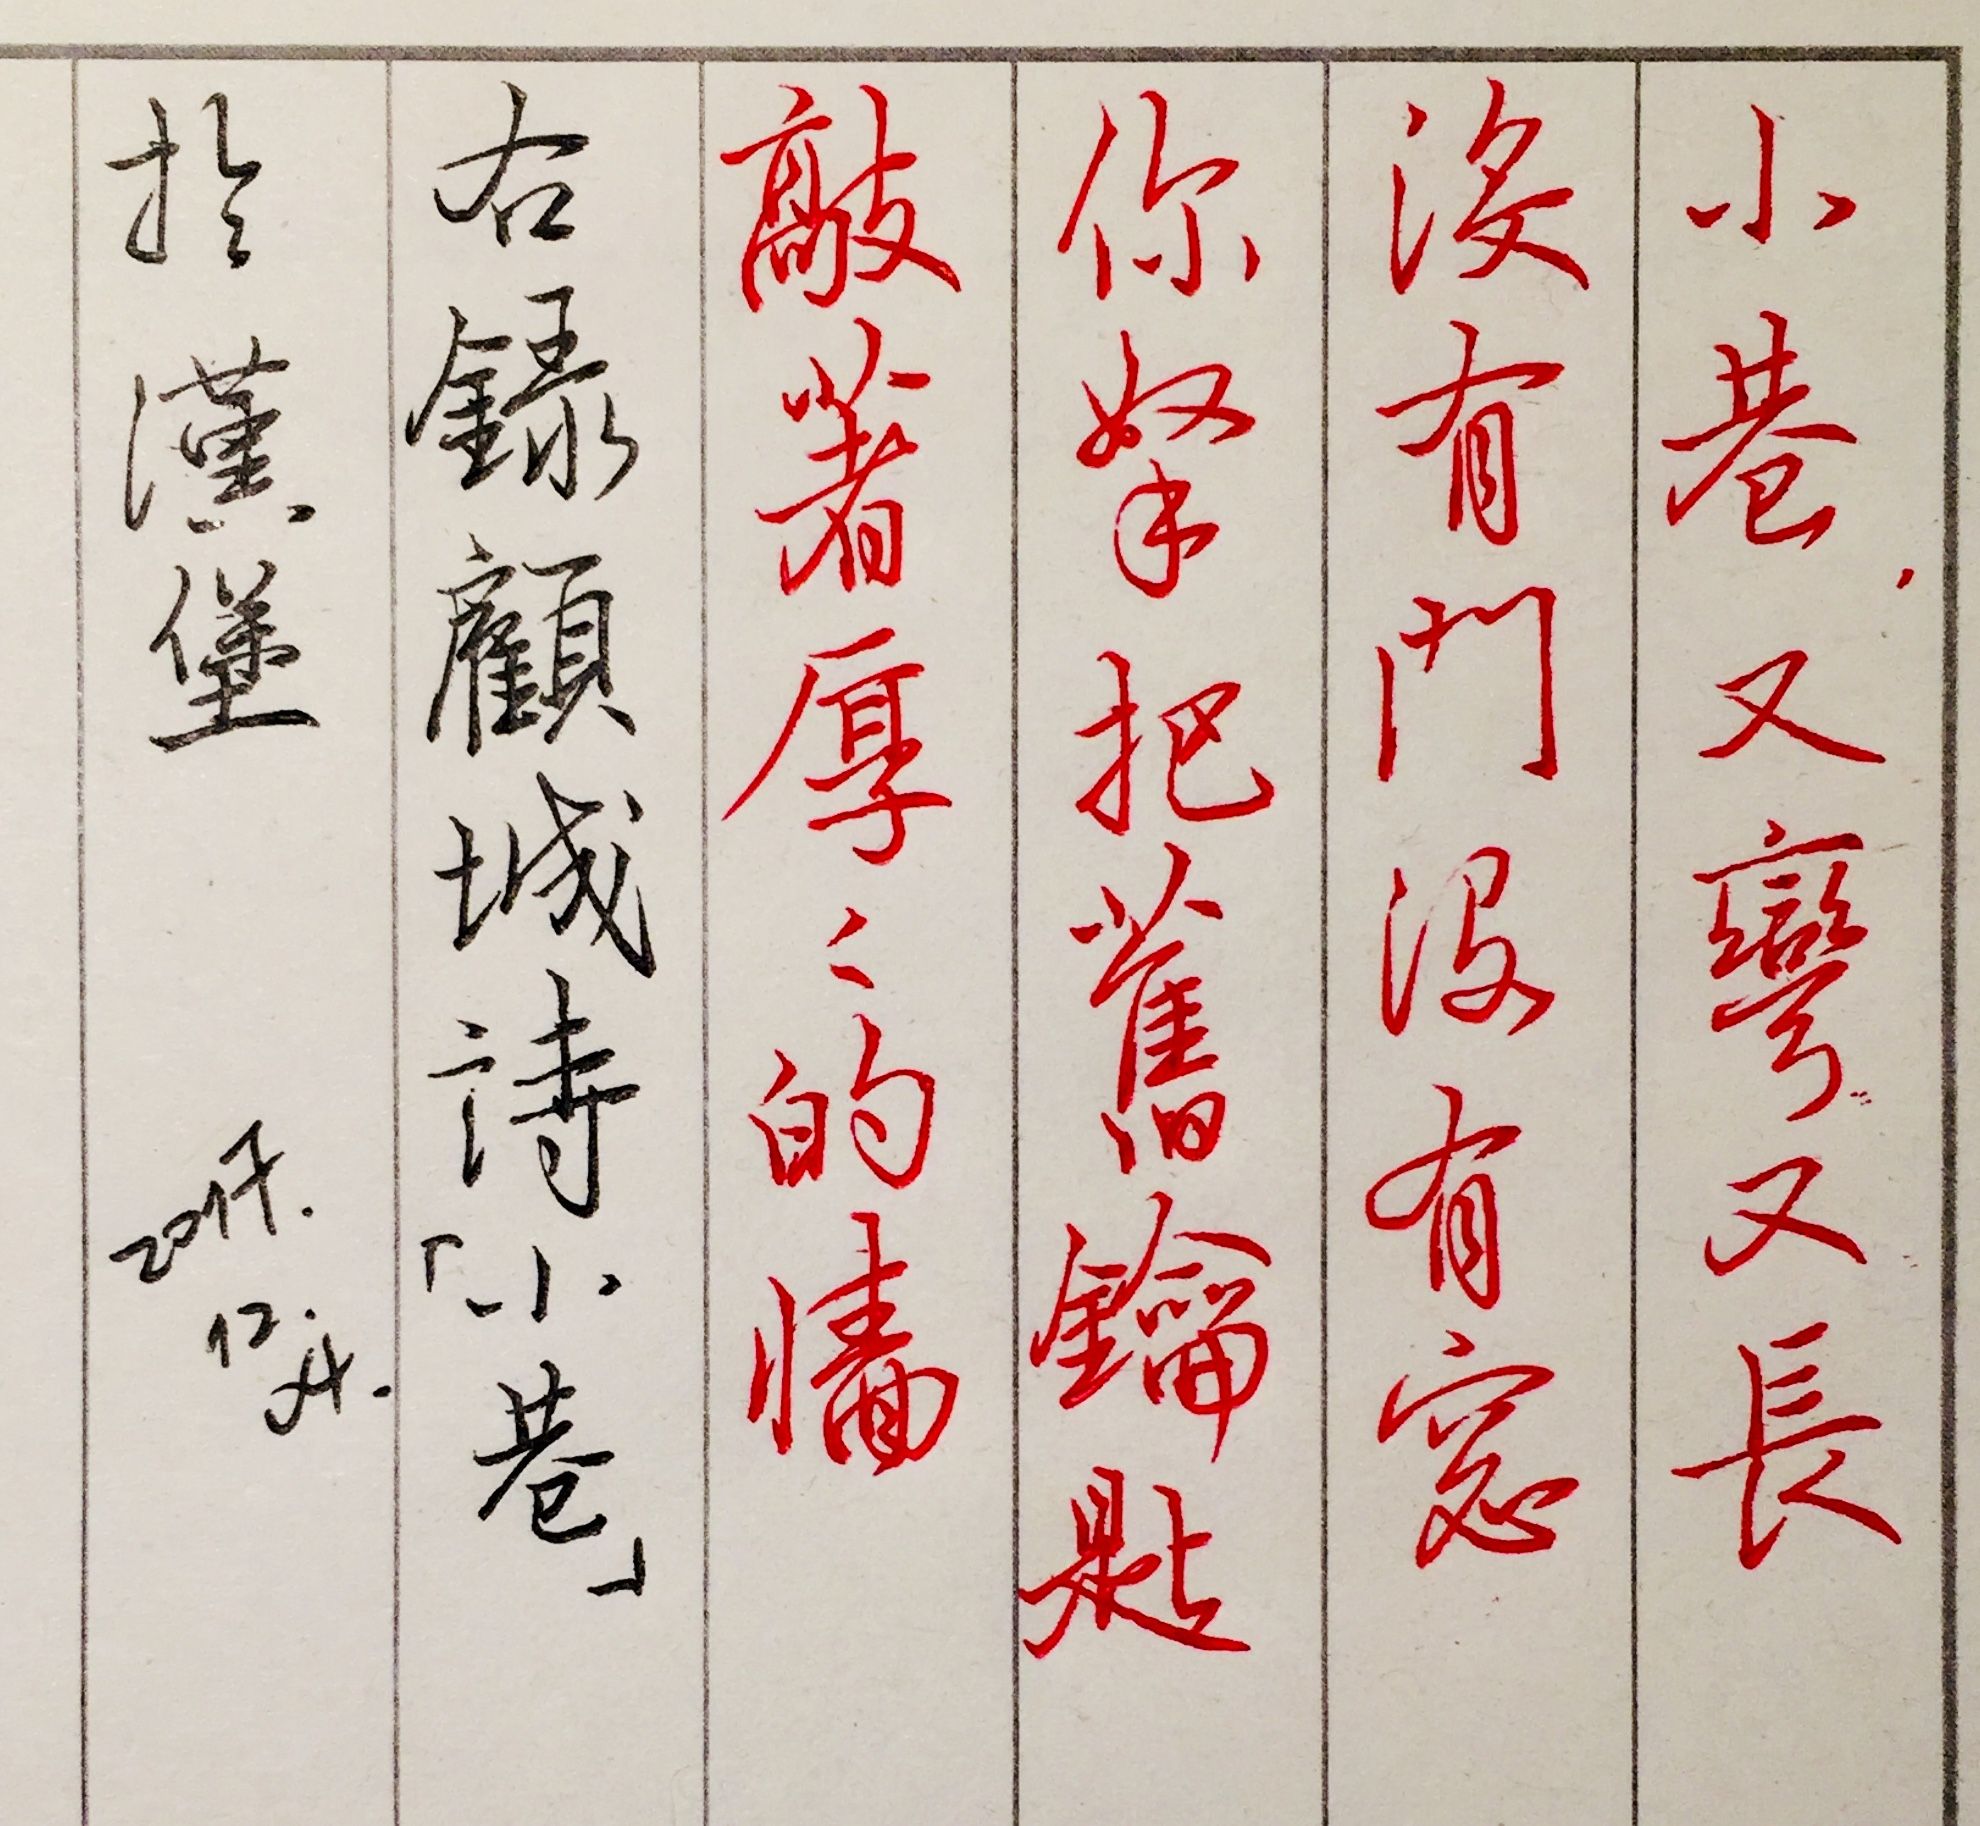 小巷又彎又長
沒有門沒有窓
你拏把舊鑰匙
敲著厚〻的牆
右錄顧城詩「小巷」
於漢堡
2017.
12.